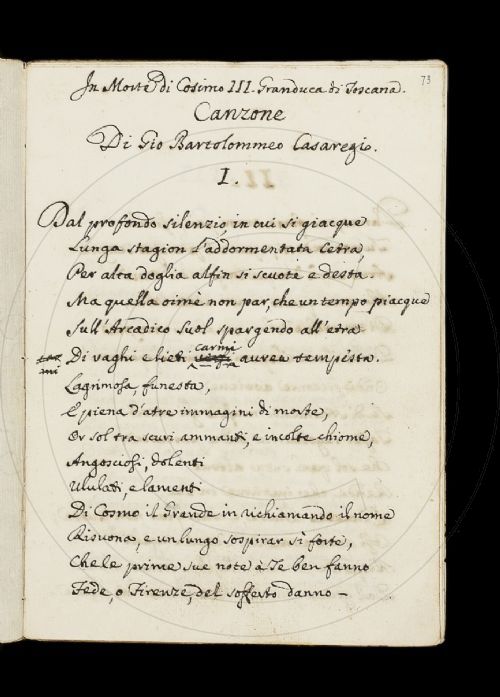 73
In Morte di Cosimo III. Granduca di Toscana.
Canzone
Di Gio Bartolommeo Casaregi.
I.
Dal profondo silenzio, in cui si giacque
Lunga stagion l'addormentata Cetra,
Per alta doglia alfin si scuote e desta.
Ma quella oimè non par, che un tempo piacque
Sull'Arcadico suol spargendo all'etra
carmi
Di vaghi e lieti aurea tempesta.
Lagrimosa, funesta,
E piena d'atre immagini di morte,
Or sol tra scuri ammanti, e incolte chiome,
Angosciosi, dolenti
Ululati, e lamenti
Di Cosmo il Grande in richiamando il nome
Risuona, e un lungo sospirar sì forte,
Che le prime sue note à Te ben fanno
Fede, o Firenze, del sofferto danno –